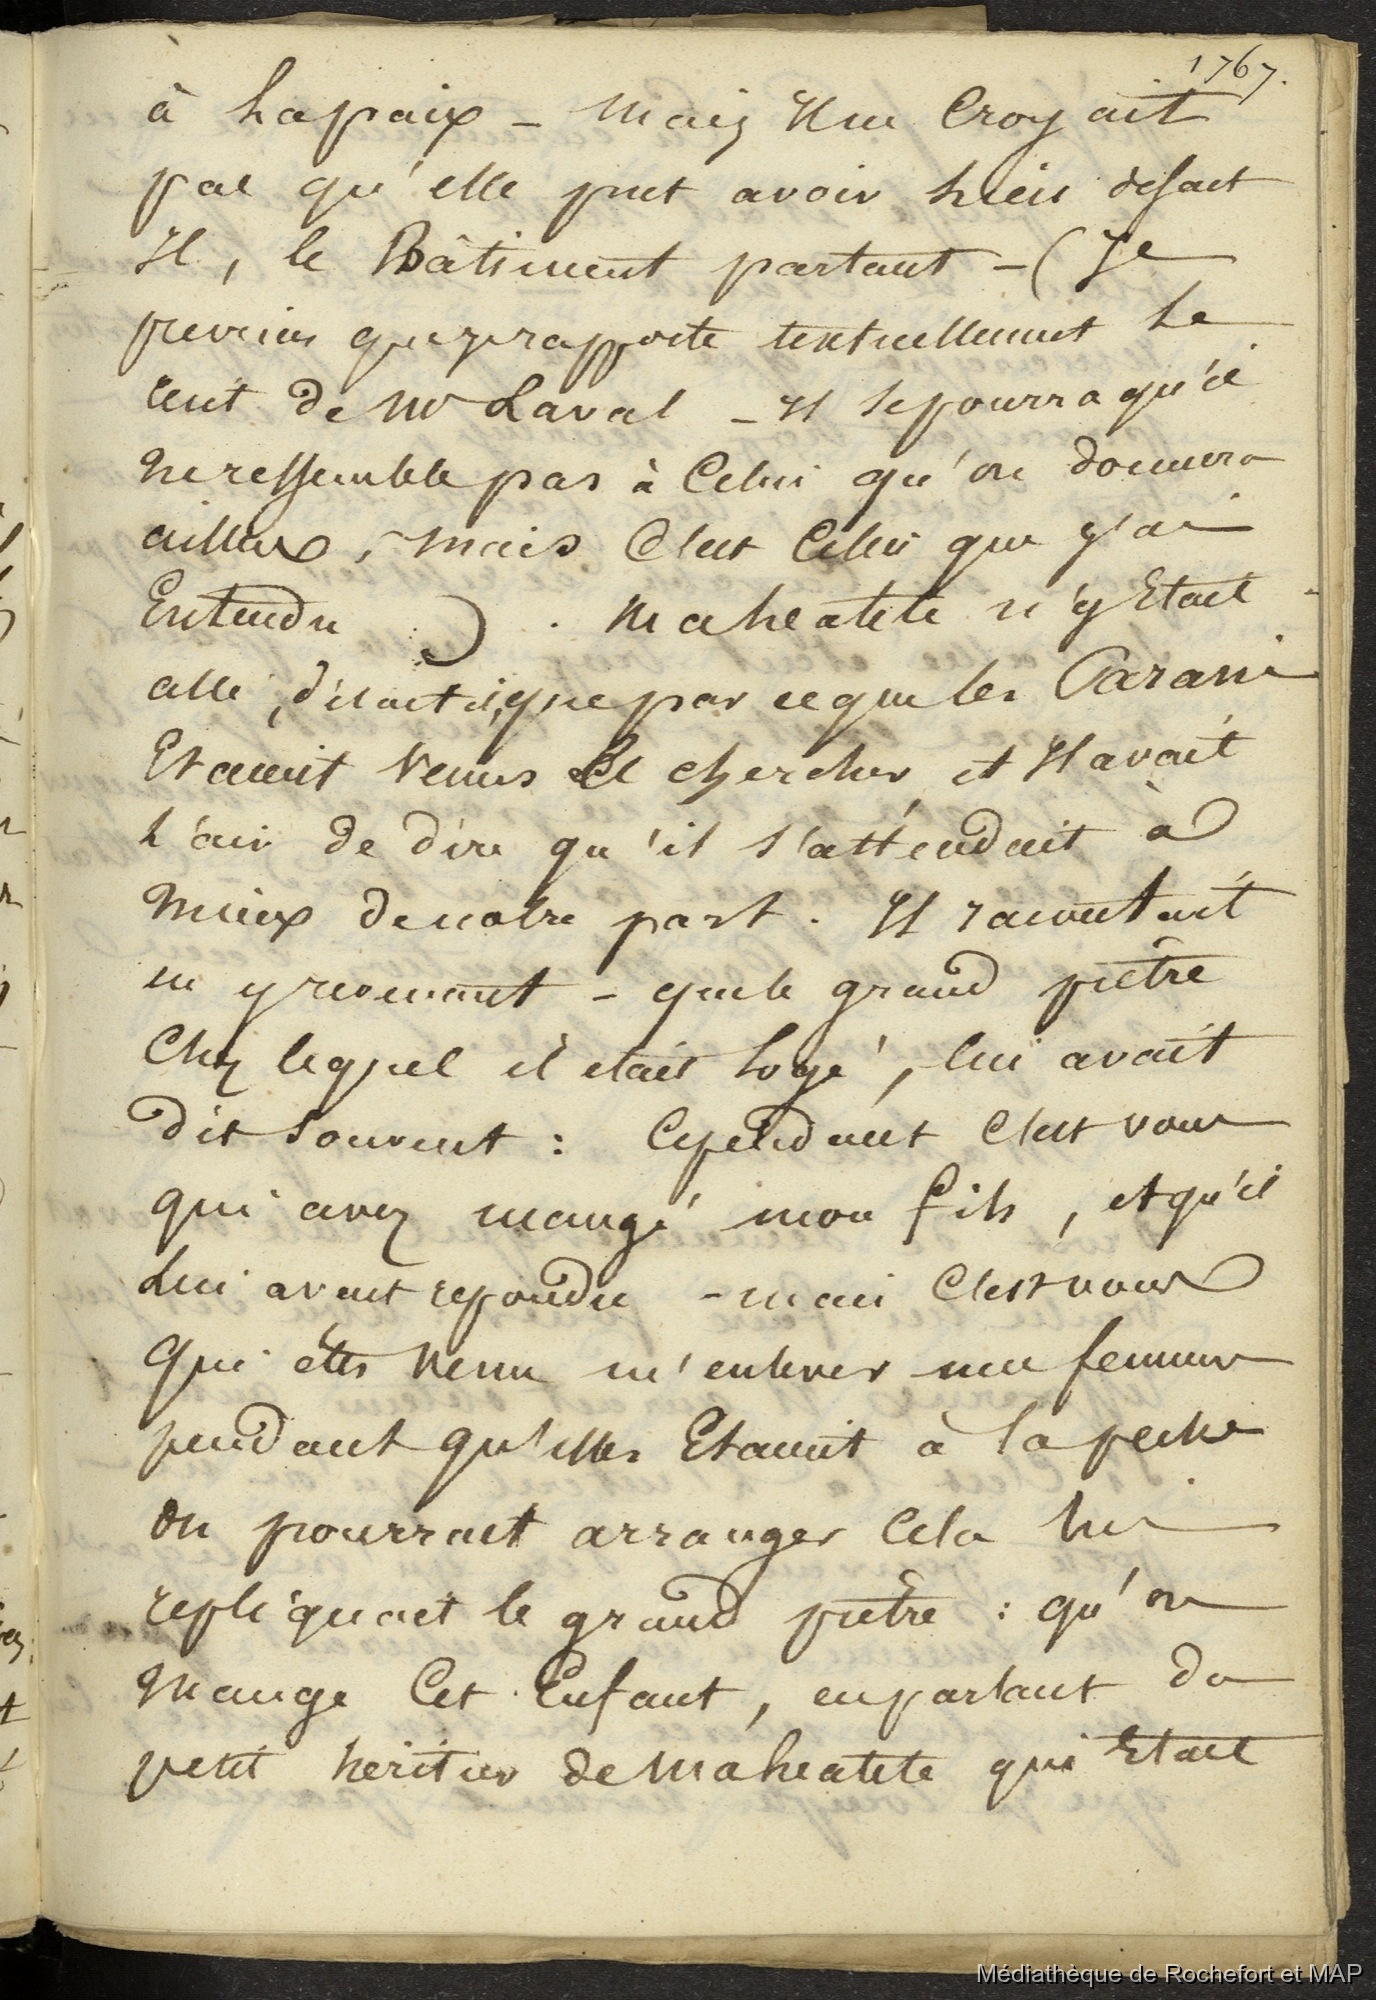 1767.
à la paix – mais Il ne Croyait
pas qu'elle put avoir lieu disait
Il, le Bâtiment partant – (Je
previens que je rapporte textuellement le
recit de Mr Laval – Il se pourra qu'il
ne ressemble pas à Celui qu'on donnera
ailleurs, mais C'est Celui que j'ai
Entendu ). Maheatete n'y Etait
allé, disait il, que par ce que les
Etaient Venus le chercher, et Il avait
l'air de dire qu'il s'attendait à
mieux de notre part. Il racontait
en y revenant – que le grand prêtre
Chez lequel il etait logé, lui avait
dit souvent : Cependant C'est vous
qui avez mangé mon fils, et qu'il
Lui avait repondu – mais C'est vous
Qui êtes Venu m'enlever mes femmes
pendant qu'elles Etaient à la peche
On pourrait arranger Cela lui
repliquait le grand prêtre : qu'on
Mange Cet Enfant, en parlant du
petit heritier de Maheatete qui Etait
Médiathèque de Rochefort et MAP